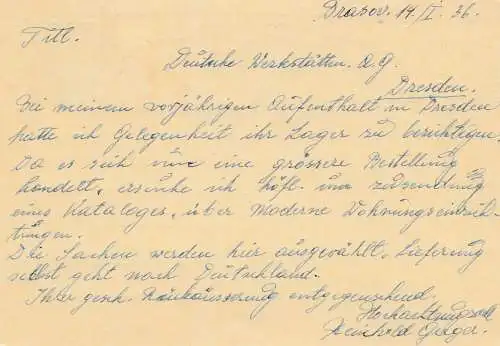 Brasov. 14/I. 36.
Titl.
Deutsche Werkstätten. A.G.
Dresden.
Bei meinem vorjährigen Aufenthalt in Dresden
hatte ich Gelegenheit ihr Lager zu besichtigen.
Da es sich um eine grössere Bestellung
handelt, ersuche ich höfl. um zusendung
eines Kataloges, über Moderne Wohnungseinrich-
tungen.
Die Sachen werden hier ausgewählt. Lieferung
selbst geht nach Deutschland.
Ihrer gesch. Rückäusserung entgegensehend.
Hochachtungsvoll
Reinhold